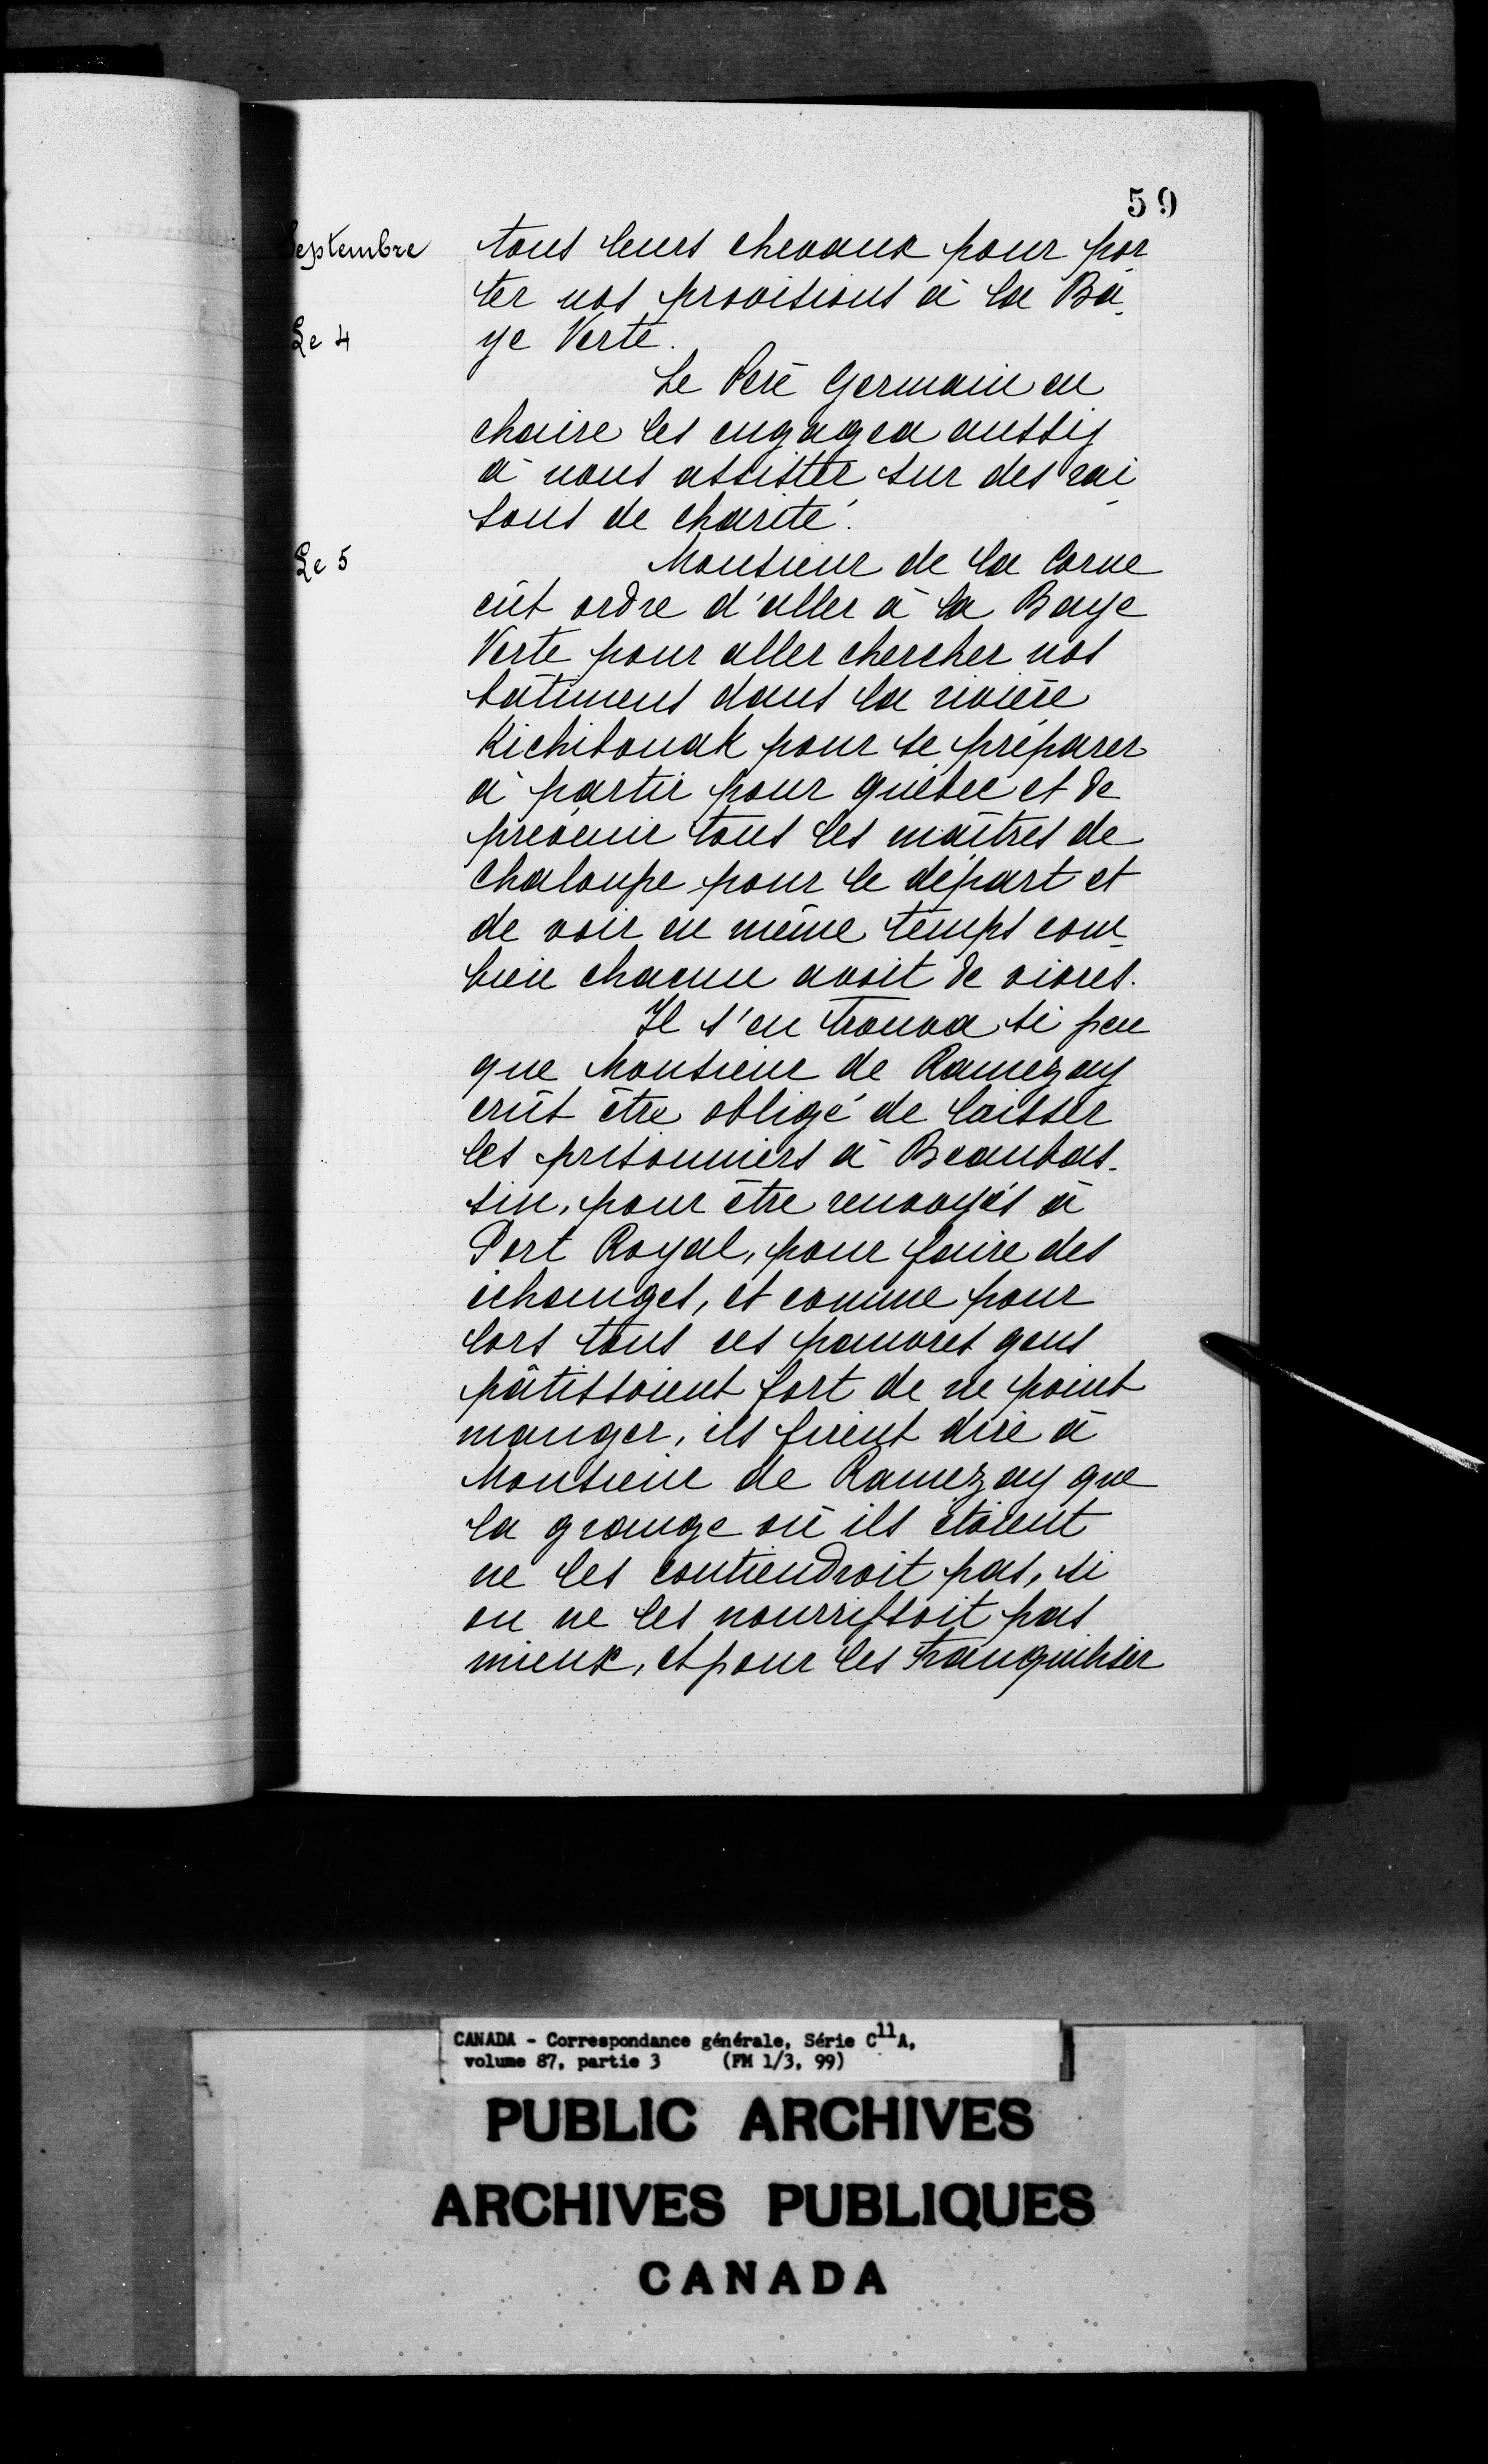 59
Septembre
tous leurs chevaux pour por
ter nos provisions à la Ba-
Le 4
ye Verte.
Le Père Germain en
chaire les engagea aussy
à nous assister sur des rai-
sons de charité.
Le 5
Monsieur de la Corne
eût ordre d'aller à la Baye
Verte pour aller chercher nos
bâtimens dans la rivière
Kichibouak pour se préparer
à partir pour Québec et de
prévenir tous les maîtres de
chaloupe pour le départ et
de voir en même temps com-
bien chacun avoit de vivres.
Il s'en trouva si peu
que Monsieur de Ramezay
crût être obligé de laisser
les prisonniers à Beaubas-
sin, pour être renvoyés à
Port Royal, pour faire des
échanges, et comme pour
lors tous ces pauvres gens
pâtissoient fort de ne point
manger, ils firent dire à
Monsieur de Ramezay que
la grange où ils étoient
ne les contiendroit pas, si
on ne les nourrissoit pas
mieux, et pour les tranquiliser
CANADA - Correspondance générale, Série C11A,
volume 87, partie 3 (FM 1/3, 99)
PUBLIC ARCHIVES
ARCHIVES PUBLIQUES
CANADA